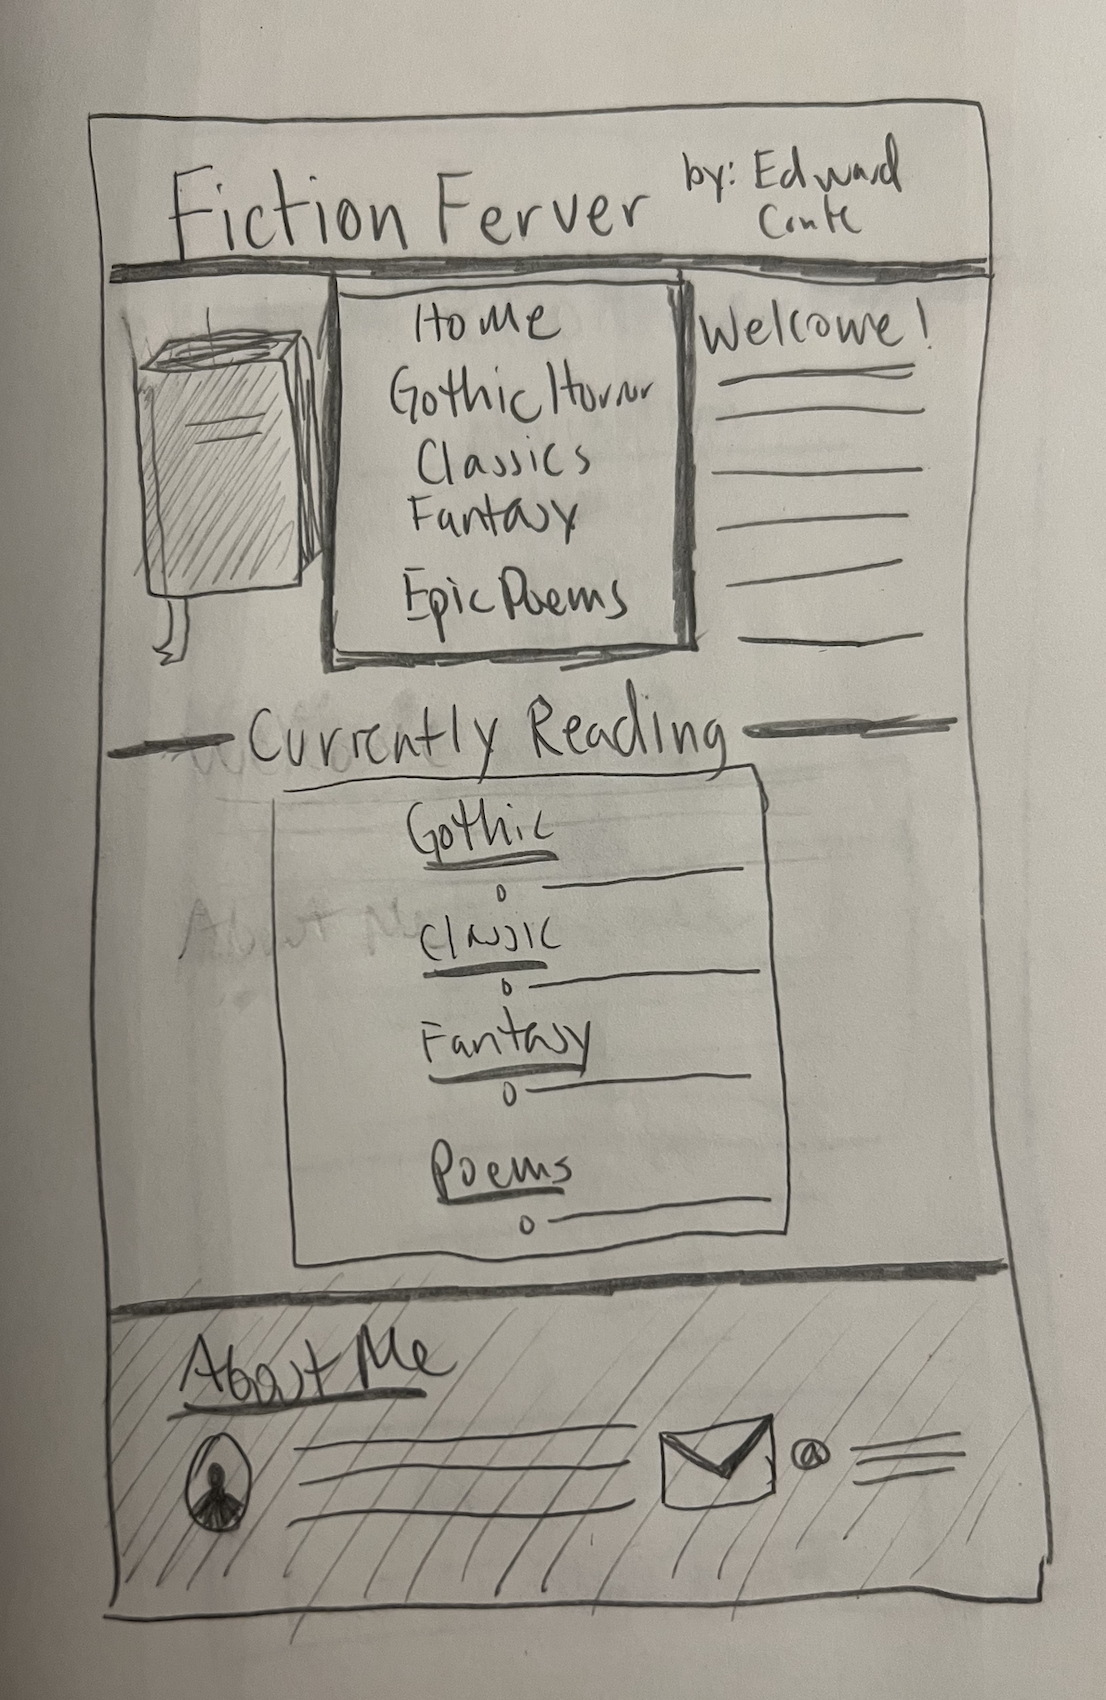 Fiction Ferver
by: Edward
Conte
Home
Gothic Horror
Classics
Fantasy
Epic Poems
Welcome!
Currently Reading
Gothic
Classic
Fantasy
Poems
About Me
@